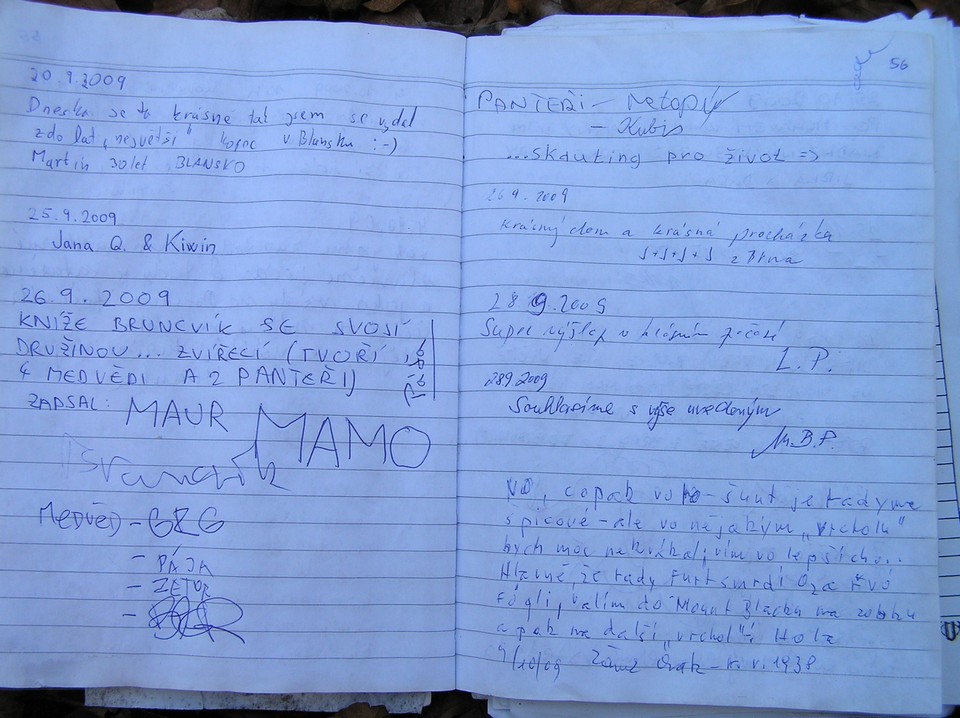 20.9.2009
Dneska je to krásné tak jsem se vydal
zdolat „největší" kopec v Blansku :-)
Martin 30 let BLANSKO
25.9.2009
Jana Q. & Kiwin
26.9.2009
KNÍŽE BRUNCVÍK SE SVOJÍ
DRUŽINOU... ZVÍŘECÍ (TVOŘÍ
4 MEDVĚDI A 2 PANTEŘI)
ZAPSAL: MAUR MAMO
Bruncvík
MEDVĚD - GZG
- PÁJA
- ZETOR
56
PANTEŘI - netopýr
- Kubis
...skauting pro život =>
26.9.2009
krásný dom a krásná procházka
J+J+J+J z Brna
28.9.2009
Super výšlap v krásném počasí
L.P.
28.9.2009
Souhlasíme s výše uvedeným
M.B.P.
NO, copak vo to-šunt je tadyma
špicové - ale vo nějakým „vrcholu"
bych moc nekvákal, vím vo lepších...
Hlavně, že tady furt smrdí a řvó
fógli, valím do Mount Blacku na
a pak na další „vrchol":
9/10/09 - n. v. 1938